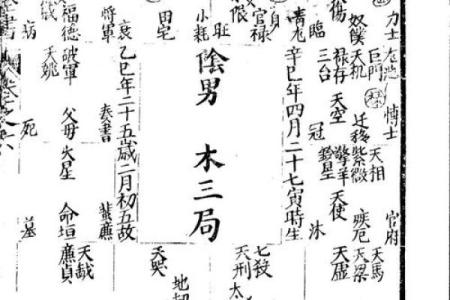 力士
博士
官府
巨門
天相
天馬
奴僕
天機
遷移
紫微
疾厄
天梁
祿存
天空
擎羊
天使
天虛
臨
三台
冠
鈴星
沐
青龍
辛巳年四月二十七寅時生
官祿
身
旺
七殺
天刑
小耗
陰男 木三局
田宅
天哭
將軍
乙巳年二十五歲二月初五故
奏書
蜚廉
天鉞
福德
破軍
父母
火星
命垣
廉貞
天姚
病
死
墓